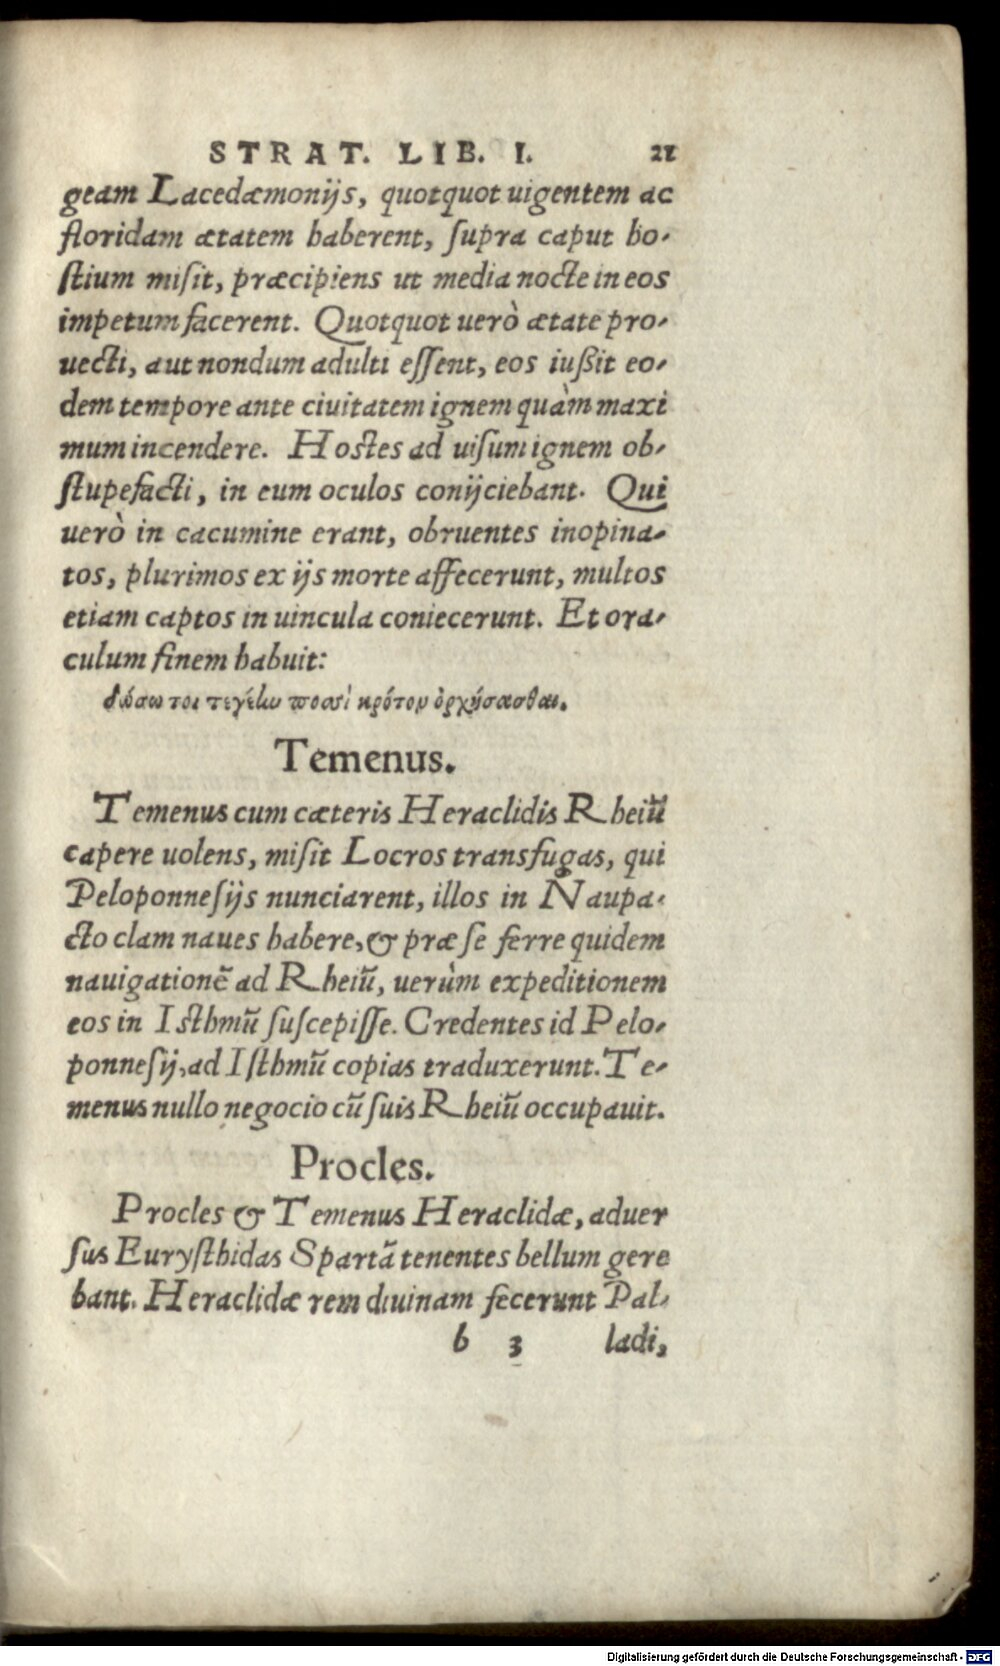 STRAT. LIB. I. 21
geam Lacedæmonijs, quotquot uigentem ac
floridam ætatem haberent, ſupra caput ho-
ſtium miſit, præcipiens ut media nocte in eos
impetum facerent. Quotquot uerò ætate pro-
uecti, aut nondum adulti eſſent, eos iußit eo-
dem tempore ante ciuitatem ignem quàm maxi
mum incendere. Hostes ad uiſum ignem ob-
ſtupefacti, in eum oculos conijciebant. Qui
uerò in cacumine erant, obruentes inopina-
tos, plurimos ex ijs morte affecerunt, multos
etiam captos in uincula coniecerunt. Et ora-
culum finem habuit:
δώσω τοι τεγέην ποσσὶ κρότον ὀρχήσασθαι.
Temenus.
Temenus cum cæteris Heraclidis Rheiũ
capere uolens, miſit Locros transfugas, qui
Peloponneſijs nunciarent, illos in Naupa-
cto clam naues habere, & præ ſe ferre quidem
nauigationẽ ad Rheiũ, uerùm expeditionem
eos in Isthmũ ſuſcepiſſe. Credentes id Pelo-
ponneſij, ad Iſthmũ copias traduxerunt. Te-
menus nullo negocio cũ ſuis Rheiũ occupauit.
Procles.
Procles & Temenus Heraclidæ, aduer
ſus Euryſthidas Spartã tenentes bellum gere
bant. Heraclidæ rem diuinam fecerunt Pal-
b 3 ladi,
Digitalisierung gefördert durch die Deutsche Forschungsgemeinschaft - DFG